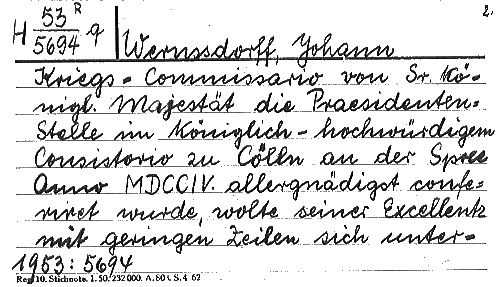 2.
H 53 R / 5694 q
Wernssdorff, Johann
Kriegs-Commissario von Sr. Kö-
nigl. Majestät die Praesidenten-
Stelle im Königlich-hochwürdigem
Consistorio zu Cölln an der Spree
Anno MDCCIV. allergnädigst confe-
riret wurde, wolte seiner Excellentz
mit geringen Zeilen sich unter-
1953: 5694
Reg/10. Stichnote. 1. 50. 232000. A. 80 S. 4 62